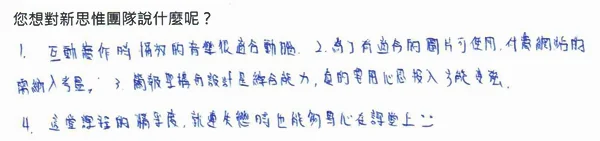 您想對新思惟團隊說什麼呢？
1. 互動實作時 播放的音樂很適合動腦. 2. 為了有適合的圖片可使用, 付費網站的
需納入考量. 3. 簡報架構與設計是綜合能力, 真的要用心思投入才能變強.
4. 這堂課程的精采度, 就連失戀時也能夠專心在課堂上